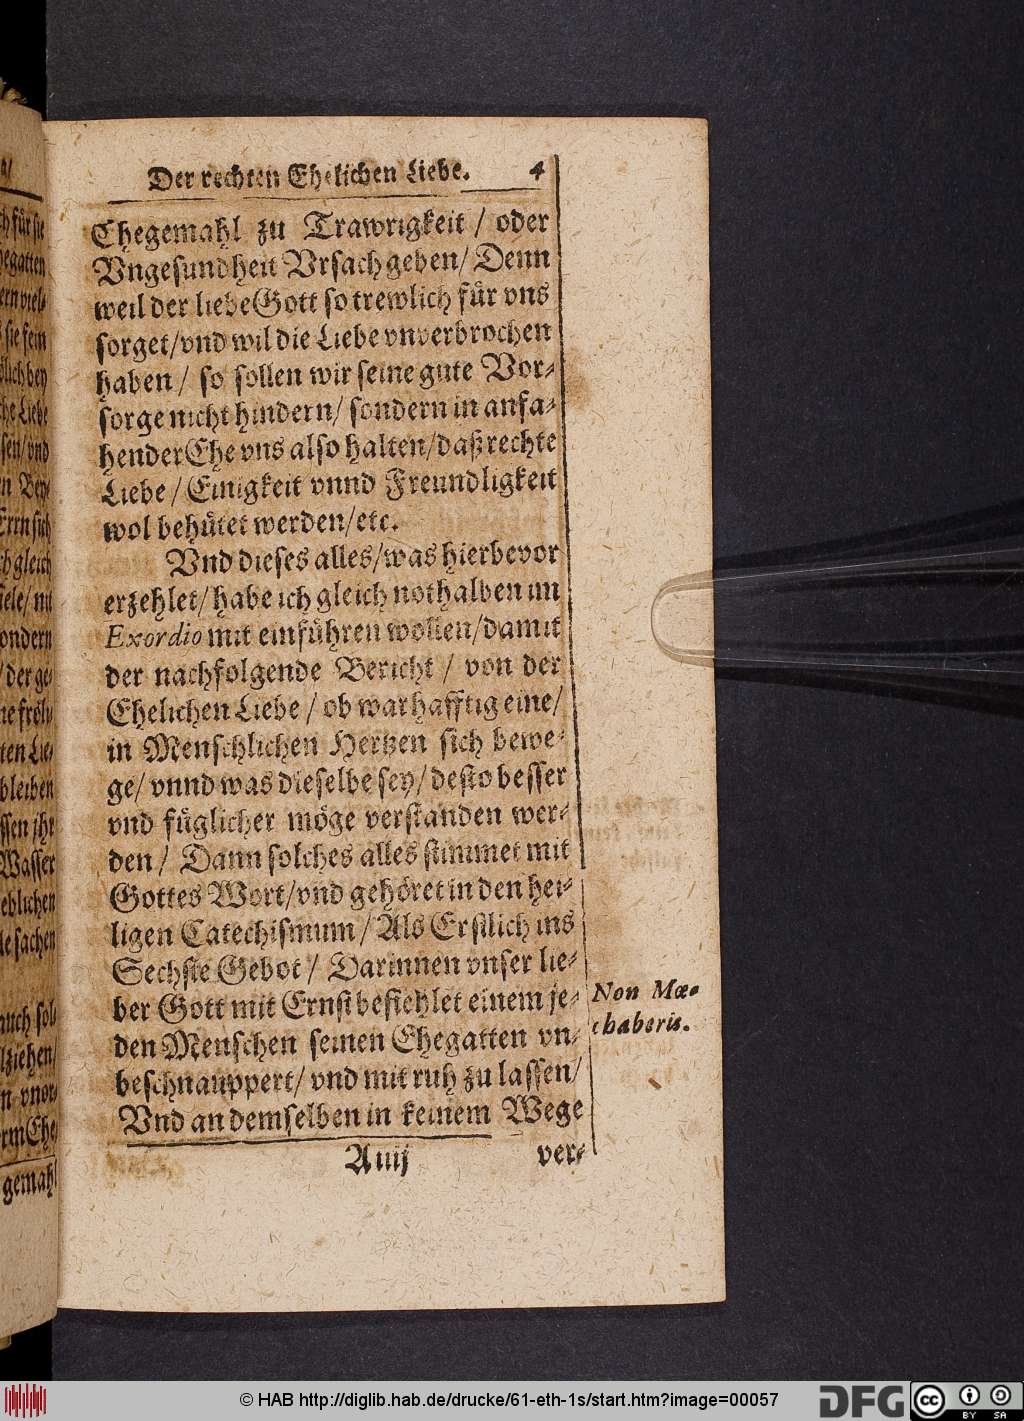 Der rechten Ehelichen Liebe. 4
Ehegemahl zu Trawrigkeit / oder
Vngesundheit Vrsach geben / Denn
weil der liebe Gott so trewlich für vns
sorget / vnd wil die Liebe vnverbrochen
haben / so sollen wir seine gute Vor⸗
sorge nicht hindern / sondern in anfa⸗
hender Ehe vns also halten / daß rechte
Liebe / Einigkeit vnnd Freundligkeit
wol behütet werden / etc.
Vnd dieses alles / was hierbevor
erzehlet / habe ich gleich nothalben im
Exordio mit einführen wollen / damit
der nachfolgende Bericht / von der
Ehelichen Liebe / ob warhafftig eine /
in Menschlichen Hertzen sich bewe⸗
ge / vnnd was dieselbe sey / desto besser
vnd füglicher möge verstanden wer⸗
den / Dann solches alles stimmet mit
Gottes Wort / vnd gehöret in den hei⸗
ligen Catechismum / Als Erstlich ins
Sechste Gebot / Darinnen vnser lie⸗
ber Gott mit Ernst befiehlet einem je⸗
den Menschen seinen Ehegatten vn⸗
beschnauppert / vnd mit ruh zu lassen /
Vnd an demselben in keinem Wege
A iiij ver⸗
Non Mœ⸗
chaberis.
für sie
egatten
sie sein
lich bey
he Liebe
sen / vnd
ErÍn sich
gleich
iele / mit
ondern
/ der ge⸗
ne fröli⸗
ten Lie⸗
bleiben
ssen jhr
Wasser
eblichen
le sachen
auch sol⸗
lziehen /
n vnor⸗
rm Ehe⸗
gemahl
© HAB http://diglib.hab.de/drucke/61-eth-1s/start.htm?image=00057
DFG
cc
BY SA